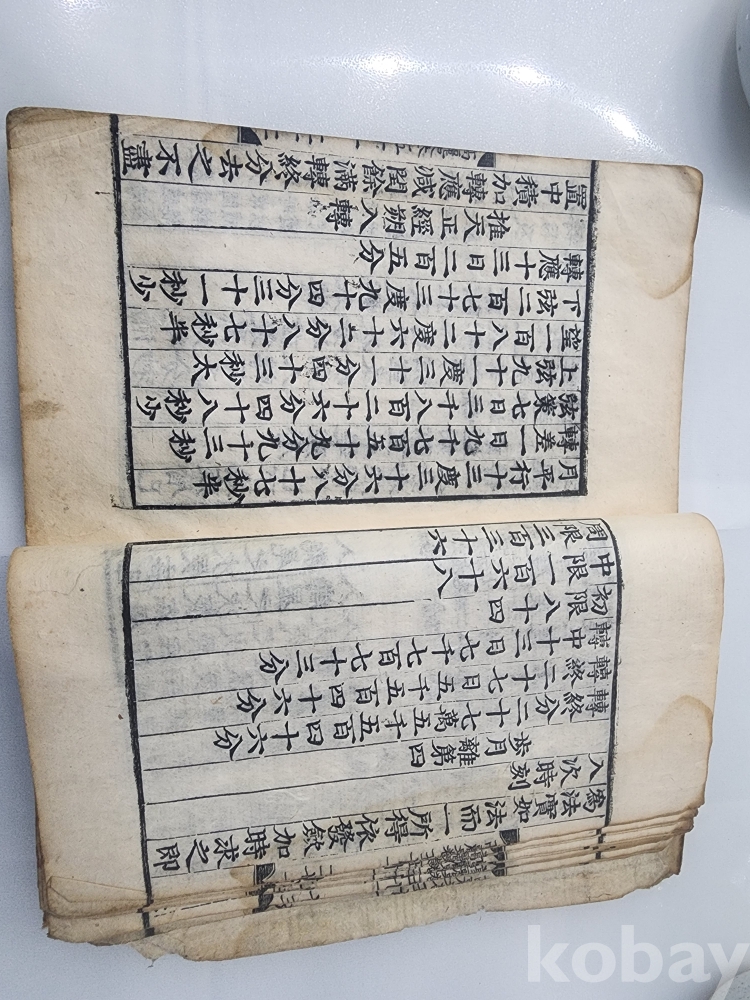 為法實如法而一所得依發斂加時求之即
入次時刻
步月離第四
轉終分二十七萬五千五百四十六分
轉終二十七日五千五百四十六分
轉中十三日七千七百七十三分
初限八十四
中限一百六十八
周限三百三十六
月平行十三度三十六分八十七秒半
轉差一日九千七百五十九分九十三秒
弦策七日三千八百二十六分四十八秒少
上弦九十一度三十一分四十三秒太
望一百八十二度六十二分八十七秒半
下弦二百七十三度九十四分三十一秒少
轉應十三日二百五分
推天正經朔入轉
置中積加轉應減閏餘滿轉終分去之不盡
kobay